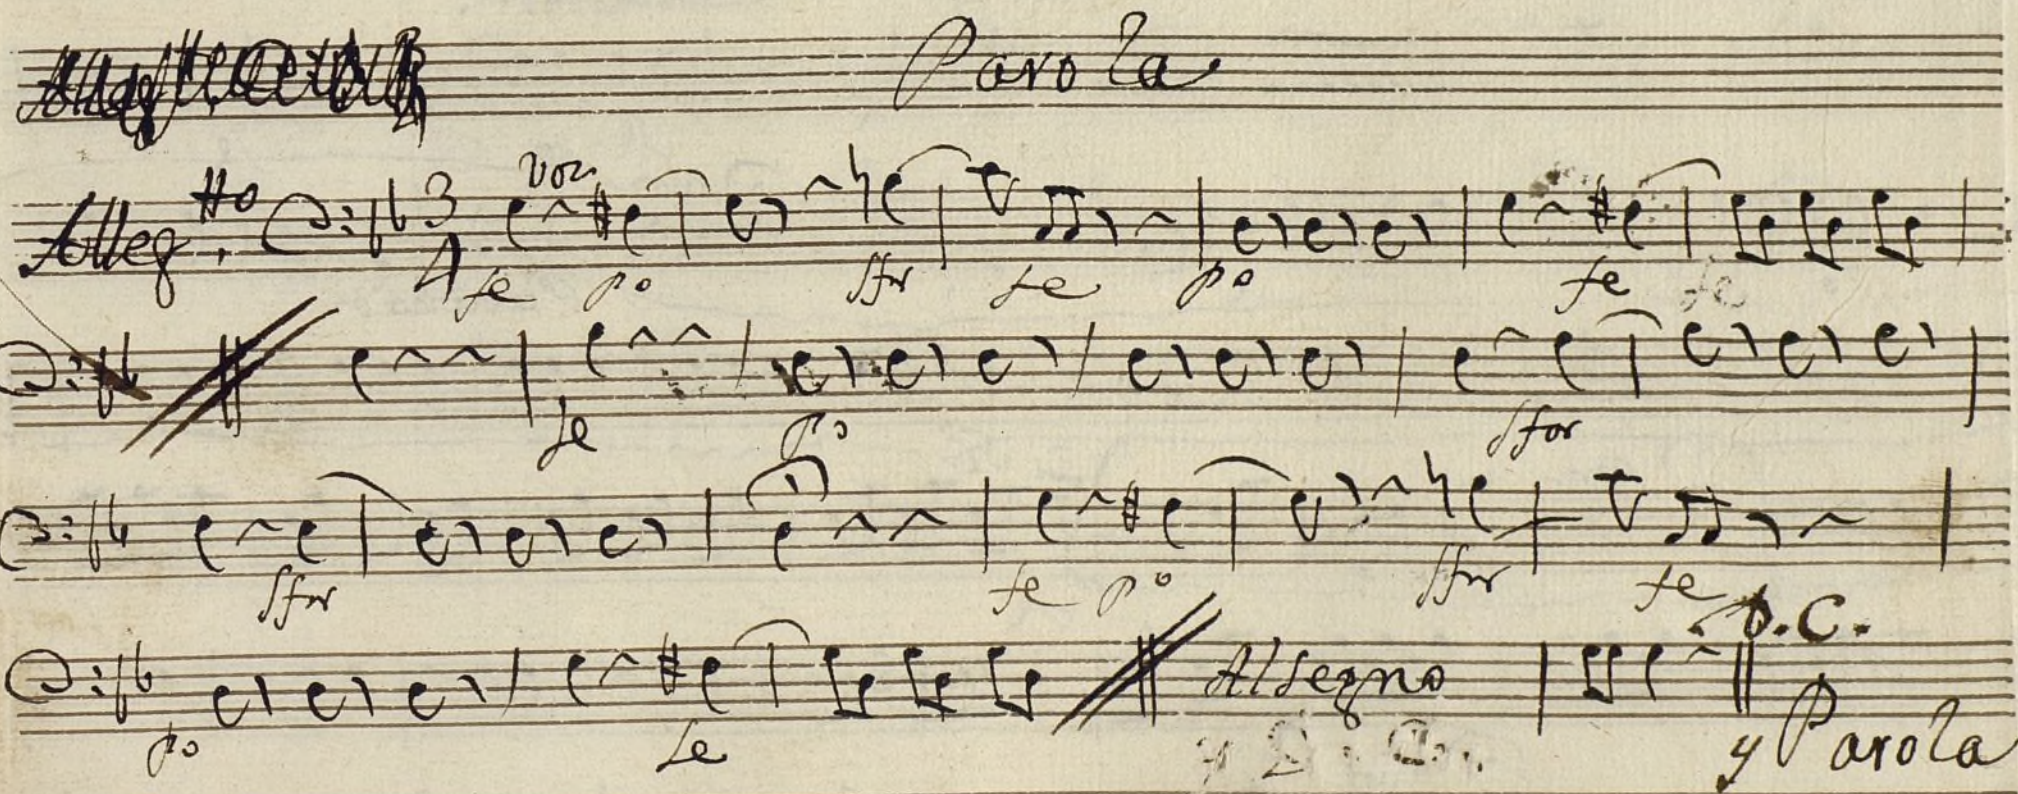 Parola
Allegtto 3/4 voz
fe po sfr fe po fe fe
fe po sfor
sfor fe po sfor fe
D.C.
Al segno
po fe
y Parola